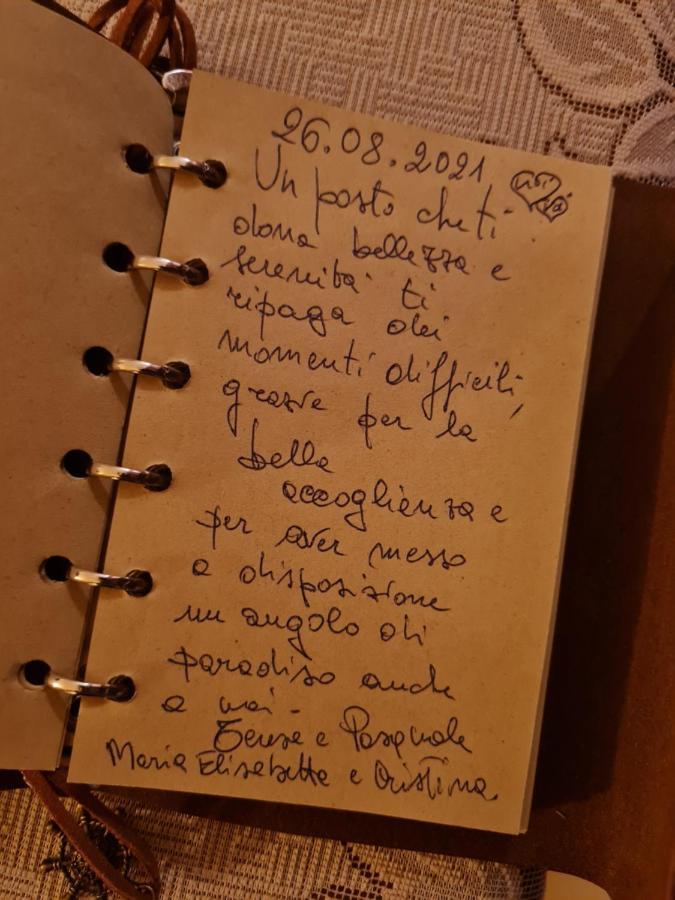 26.08.2021
Un posto che ti
dona bellezza e
serenità ti
ripaga dei
momenti difficili,
grazie per la
bella
accoglienza e
per aver messo
a disposizione
un angolo di
paradiso anche
a noi -
e Pasquale
Maria Elisabetta e Cristina